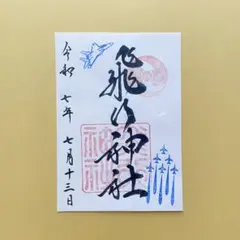 飛行神社
令和七年七月十三日